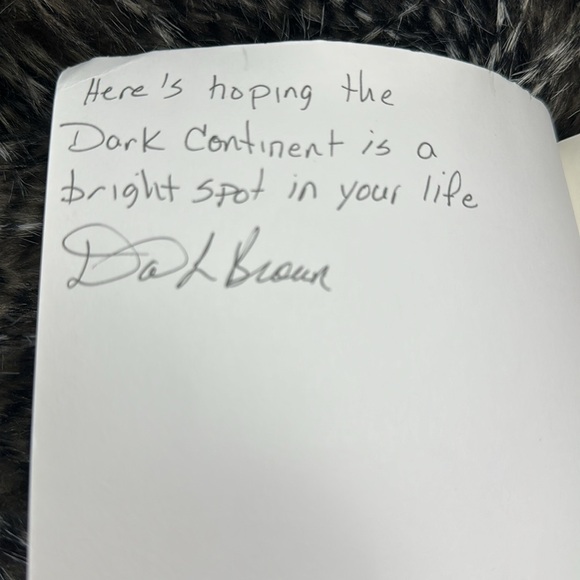 Here's hoping the
Dark Continent is a
bright spot in your life
Brown